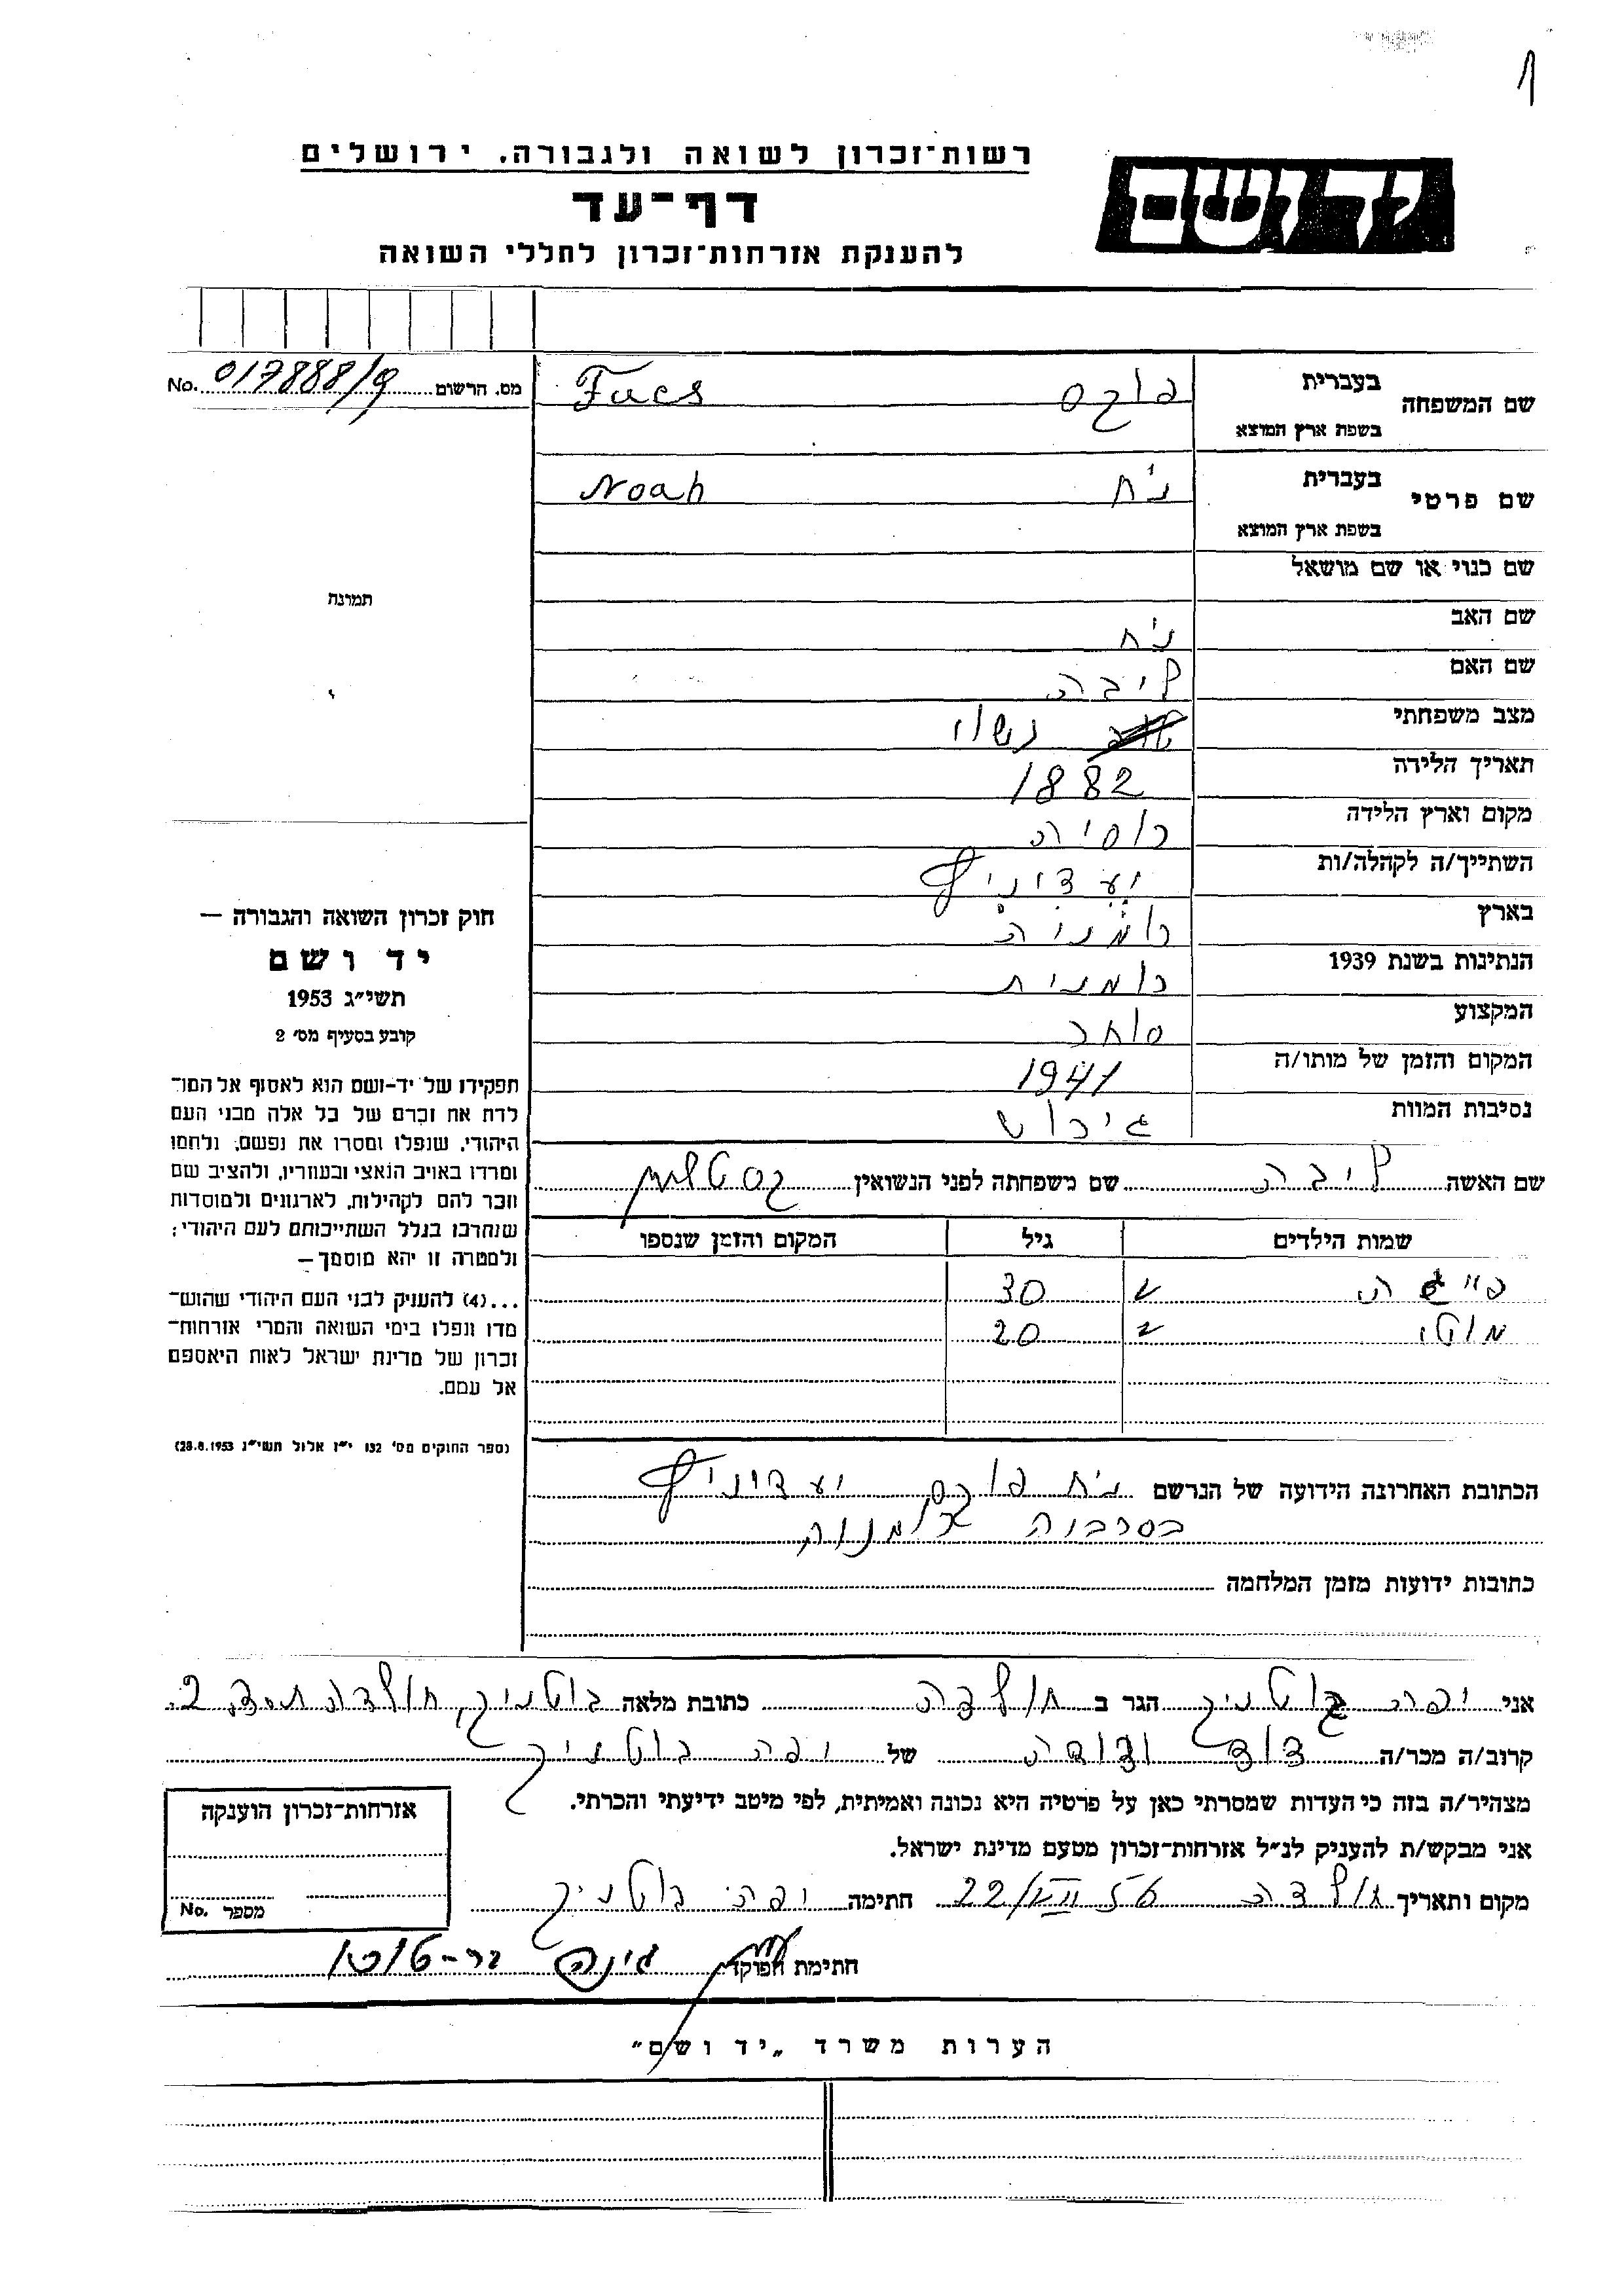 1
רשות־זכרון לשואה ולגבורה, ירושלים
יד ושם
דף־עד
להענקת אזרחות־זכרון לחללי השואה
No. 017888/9 מס. הרשום
שם המשפחה בעברית פוקס Fucs
בשפת ארץ המוצא
שם פרטי בעברית נֹח Noah
בשפת ארץ המוצא
שם כנוי או שם מושאל
תמונה
שם האב נֹח
שם האם ליבה
מצב משפחתי נשוי
תאריך הלידה 1882
מקום וארץ הלידה רוסיה
השתייך/ה לקהלה/ות
בארץ רומניה
הנתינות בשנת 1939 רומנית
המקצוע סוחר
המקום והזמן של מותו/ה 1941
נסיבות המוות גירוש
שם האשה ליבה שם משפחתה לפני הנשואין
שמות הילדים גיל המקום והזמן שנספו
פייגה 30
מוטי 20
חוק זכרון השואה והגבורה —
יד ושם
תשי״ג 1953
קובע בסעיף מס׳ 2
תפקידו של יד-ושם הוא לאסוף אל המו־
לדת את זכרם של כל אלה מבני העם
היהודי, שנפלו ומסרו את נפשם, נלחמו
ומרדו באויב הנאצי ובעוזריו, ולהציב שם
וזכר להם לקהילות, לארגונים ולמוסדות
שנחרבו בגלל השתייכותם לעם היהודי;
ולמטרה זו יהא מוסמך—
...(4) להעניק לבני העם היהודי שהוש־
מדו ונפלו בימי השואה והמרי אזרחות־
זכרון של מדינת ישראל לאות היאספם
אל עמם.
(ספר החוקים מס׳ 132 י״ז אלול תשי״ג 28.8.1953)
הכתובת האחרונה הידועה של הנרשם נֹח פוקס
בסרביה רומניה
כתובות ידועות מזמן המלחמה
אני יפה גוטניק הגר ב חולדה כתובת מלאה גוטניק, חולדה ת.ד. 2.
קרוב/ה מכר/ה דוד ודודה של יפה גוטניק
מצהיר/ה בזה כי העדות שמסרתי כאן על פרטיה היא נכונה ואמיתית, לפי מיטב ידיעתי והכרתי.
אני מבקש/ת להעניק לנ״ל אזרחות־זכרון מטעם מדינת ישראל.
מקום ותאריך חולדה 22/VII חתימה יפה גוטניק
חתימת הפוקד
אזרחות־זכרון הוענקה
מספר No.
הערות משרד „יד ושם״